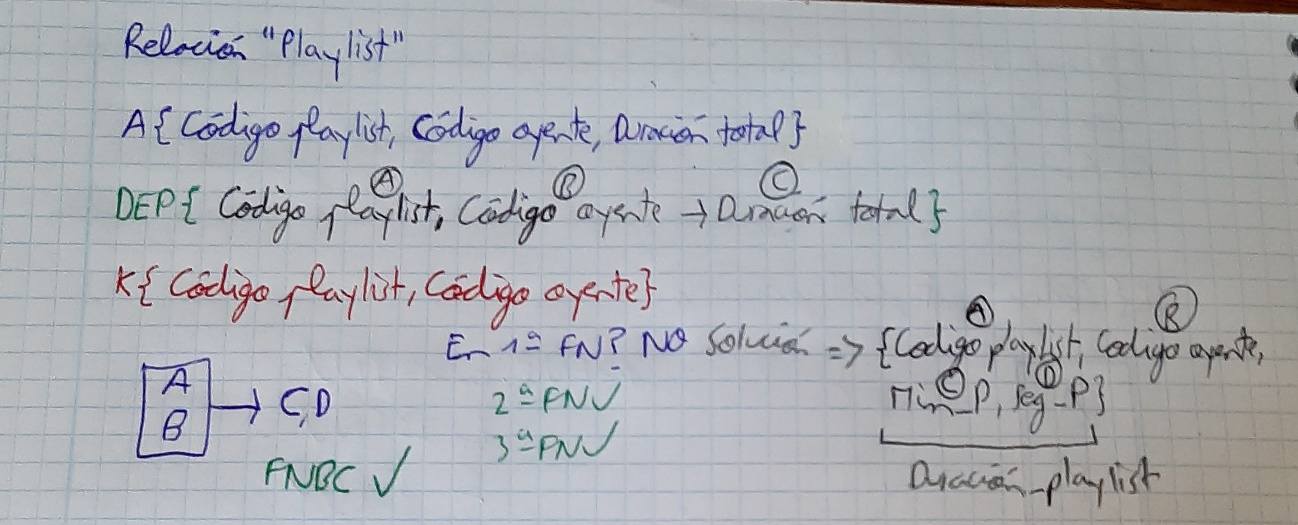 Relación "Playlist"
A{ Código playlist, Código oyente, Duración total}
A B C
DEP{ Código playlist, Código oyente → Duración total}
K{ Código playlist, Código oyente}
A B
En 1ª FN? NO Solución => {Codigo playlist, Codigo oyente,
C D
Min_P, Seg_P}
Duración_playlist
A
B
→ C,D
2ª FN ✓
3ª FN ✓
FNBC ✓